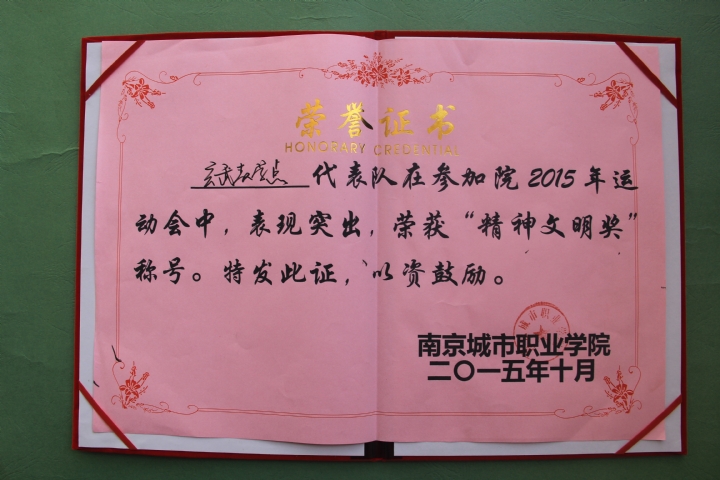 荣誉证书
HONORARY CREDENTIAL
玄武教学点 代表队在参加院2015年运
动会中，表现突出，荣获“精神文明奖”
称号。特发此证，以资鼓励。
城市职业
南京城市职业学院
二〇一五年十月